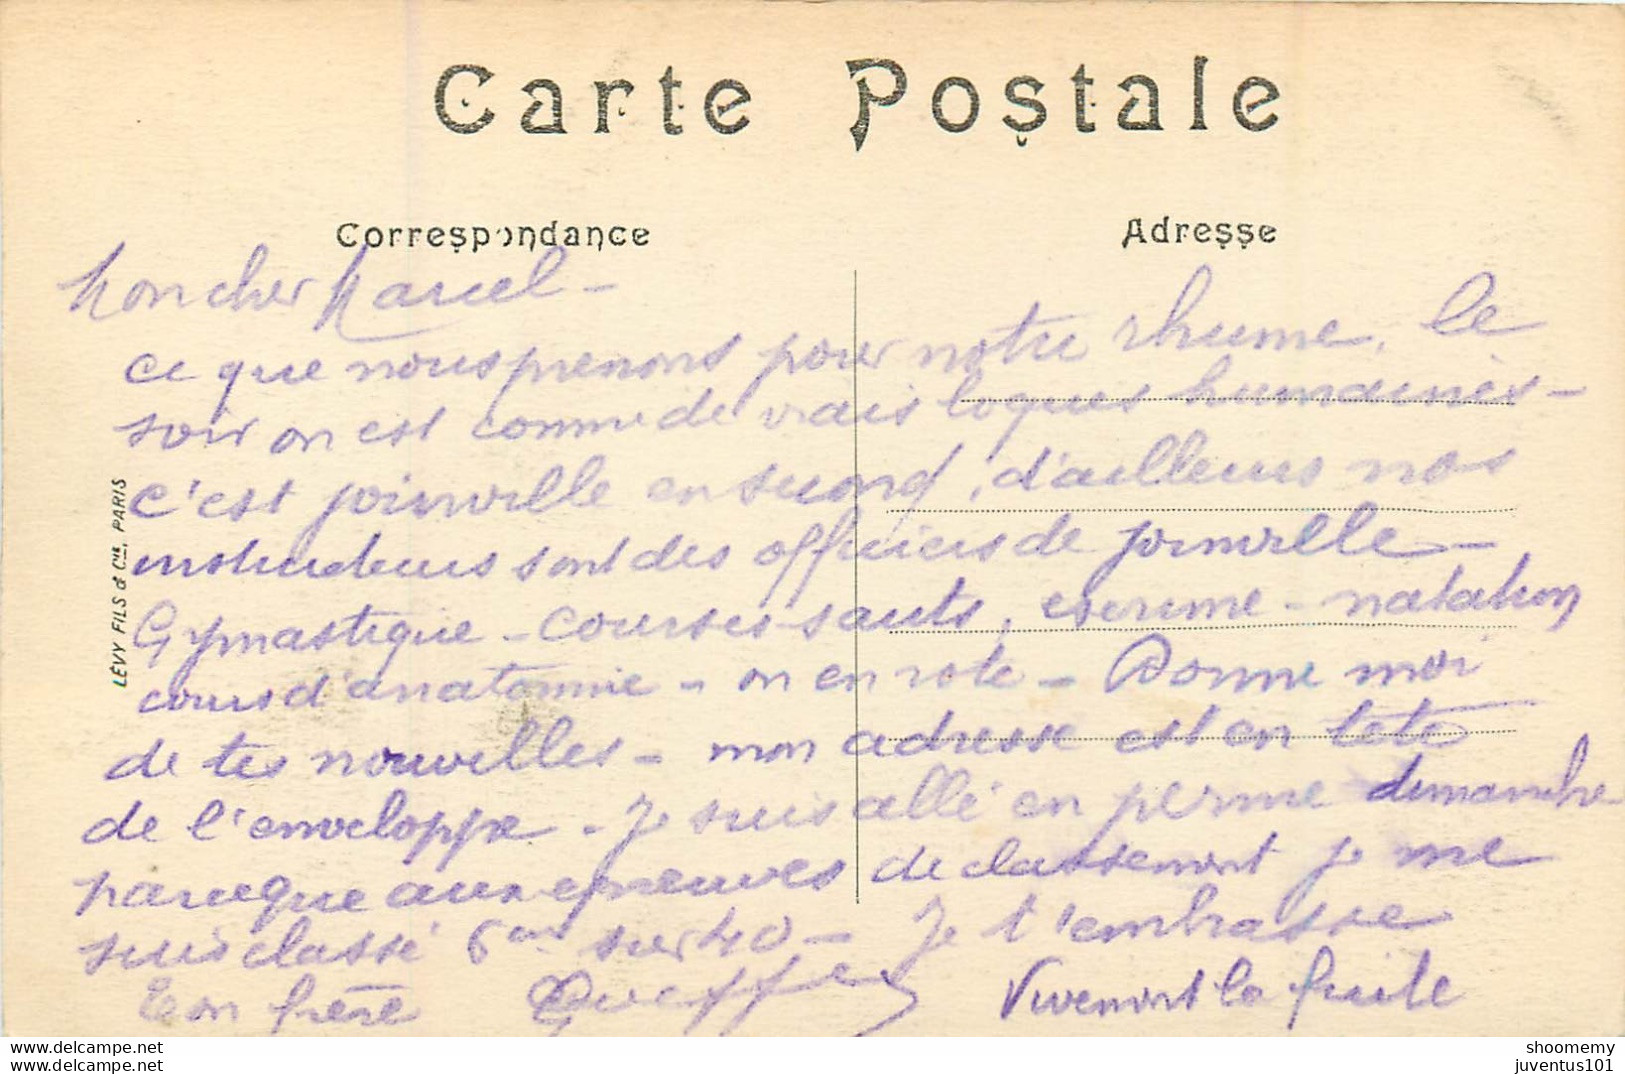 Carte Postale
Correspondance
Adresse
Mon cher Marcel -
ce que nous prenons pour notre rhume. le
soir on est comme de vrais loques humaines -
c'est joinville en second, d'ailleurs nos
instructeurs sont des officiers de joinville -
Gymastique - courses - sauts, escrime - natation
cours d'anatomie - on en rote - Donne moi
de tes nouvelles - mon adresse est en tete
de l'enveloppe - Je suis allé en perme dimanche
parceque aux epreuves de classement je me
suis classé 6eme sur 40 - Je t'embrasse
Ton frère
Vivement la fuite
LÉVY FILS & Cie, PARIS
delcampe.net
juventus101
shoomemy
juventus101